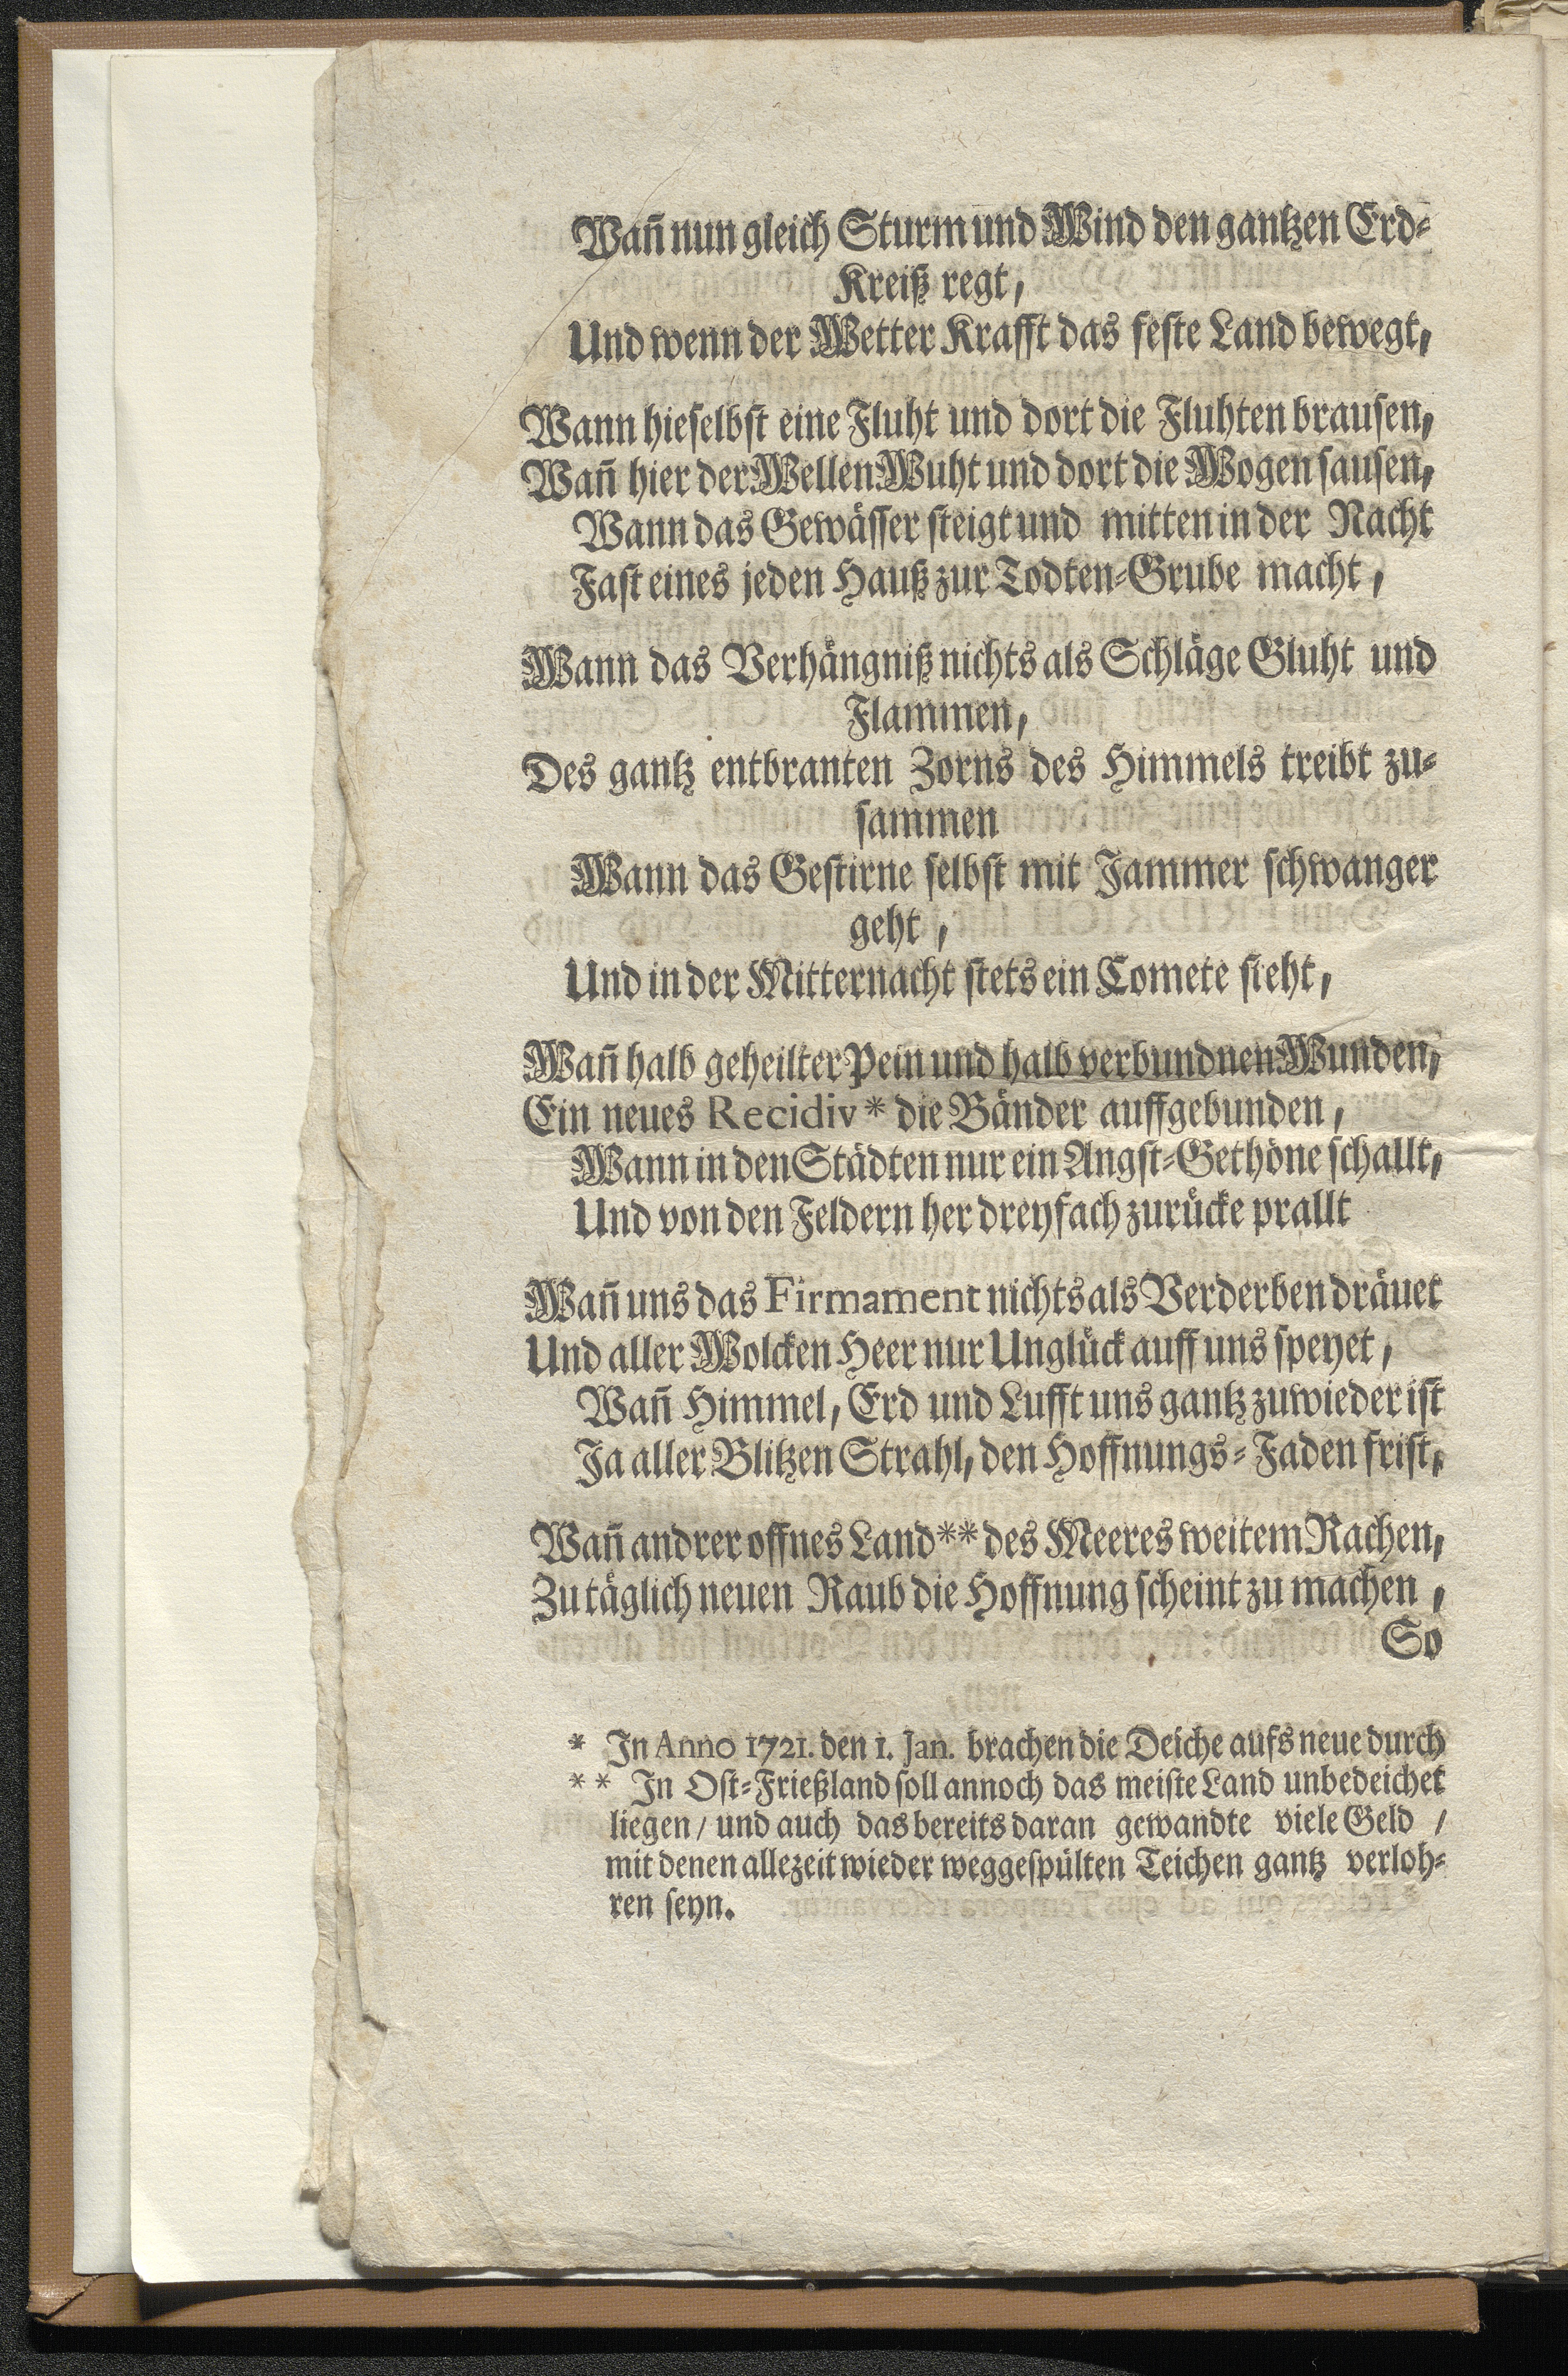 Wañ nun gleich Sturm und Wind den gantzen Erd-
Kreiß regt,
Und wenn der Wetter Krafft das feste Land bewegt,
Wann hieselbst eine Fluht und dort die Fluhten brausen,
Wañ hier der Wellen Wuht und dort die Wogen sausen,
Wann das Gewässer steigt und mitten in der Nacht
Fast eines jeden Hauß zur Todten-Grube macht,
Wann das Verhängniß nichts als Schläge Gluht und
Flammen,
Des gantz entbranten Zorns des Himmels treibt zu-
sammen
Wann das Gestirne selbst mit Jammer schwanger
geht,
Und in der Mitternacht stets ein Comete steht,
Wañ halb geheilter Pein und halb verbundnen Wunden,
Ein neues Recidiv * die Bänder auffgebunden,
Wann in den Städten nur ein Angst-Gethöne schallt,
Und von den Feldern her dreyfach zurücke prallt
Wañ uns das Firmament nichts als Verderben dräuet
Und aller Wolcken Heer nur Unglück auff uns speyet,
Wañ Himmel, Erd und Lufft uns gantz zuwieder ist
Ja aller Blitzen Strahl, den Hoffnungs-Faden frist,
Wañ andrer offnes Land ** des Meeres weitem Rachen,
Zu täglich neuen Raub die Hoffnung scheint zu machen,
So
* In Anno 1721. den 1. Jan. brachen die Deiche aufs neue durch
** In Ost-Frießland soll annoch das meiste Land unbedeichet
liegen / und auch das bereits daran gewandte viele Geld /
mit denen allezeit wieder weggespülten Teichen gantz verloh-
ren seyn.